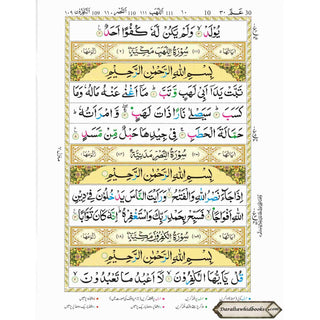 عـم ٣٠
10
١٠
الاخلاص
يُولَدْ ۙ وَلَمْ يَكُنْ لَّهٗ كُفُوًا اَحَدٌ
سُوْرَةُ اللَّهَبِ مَكِّيَّةٌ
بِسْمِ اللهِ الرَّحْمٰنِ الرَّحِيْمِ
تَبَّتْ يَدَآ اَبِيْ لَهَبٍ وَّتَبَّ ۙ مَآ اَغْنٰى عَنْهُ مَالُهٗ وَمَا
كَسَبَ ۙ سَيَصْلٰى نَارًا ذَاتَ لَهَبٍ ۙ وَّامْرَاَتُهٗ ۙ
حَمَّالَةَ الْحَطَبِ ۙ فِيْ جِيْدِهَا حَبْلٌ مِّنْ مَّسَدٍ
سُوْرَةُ النَّصْرِ مَدَنِيَّةٌ
بِسْمِ اللهِ الرَّحْمٰنِ الرَّحِيْمِ
اِذَا جَآءَ نَصْرُ اللهِ وَالْفَتْحُ ۙ وَرَاَيْتَ النَّاسَ يَدْخُلُوْنَ فِيْ دِيْنِ
اللهِ اَفْوَاجًا ۙ فَسَبِّحْ بِحَمْدِ رَبِّكَ وَاسْتَغْفِرْهُ ؕ اِنَّهٗ كَانَ تَوَّابًا
سُوْرَةُ الْكٰفِرُوْنَ مَكِّيَّةٌ
بِسْمِ اللهِ الرَّحْمٰنِ الرَّحِيْمِ
قُلْ يٰٓاَيُّهَا الْكٰفِرُوْنَ ۙ لَآ اَعْبُدُ مَا تَعْبُدُوْنَ
Darathawhidbooks.com